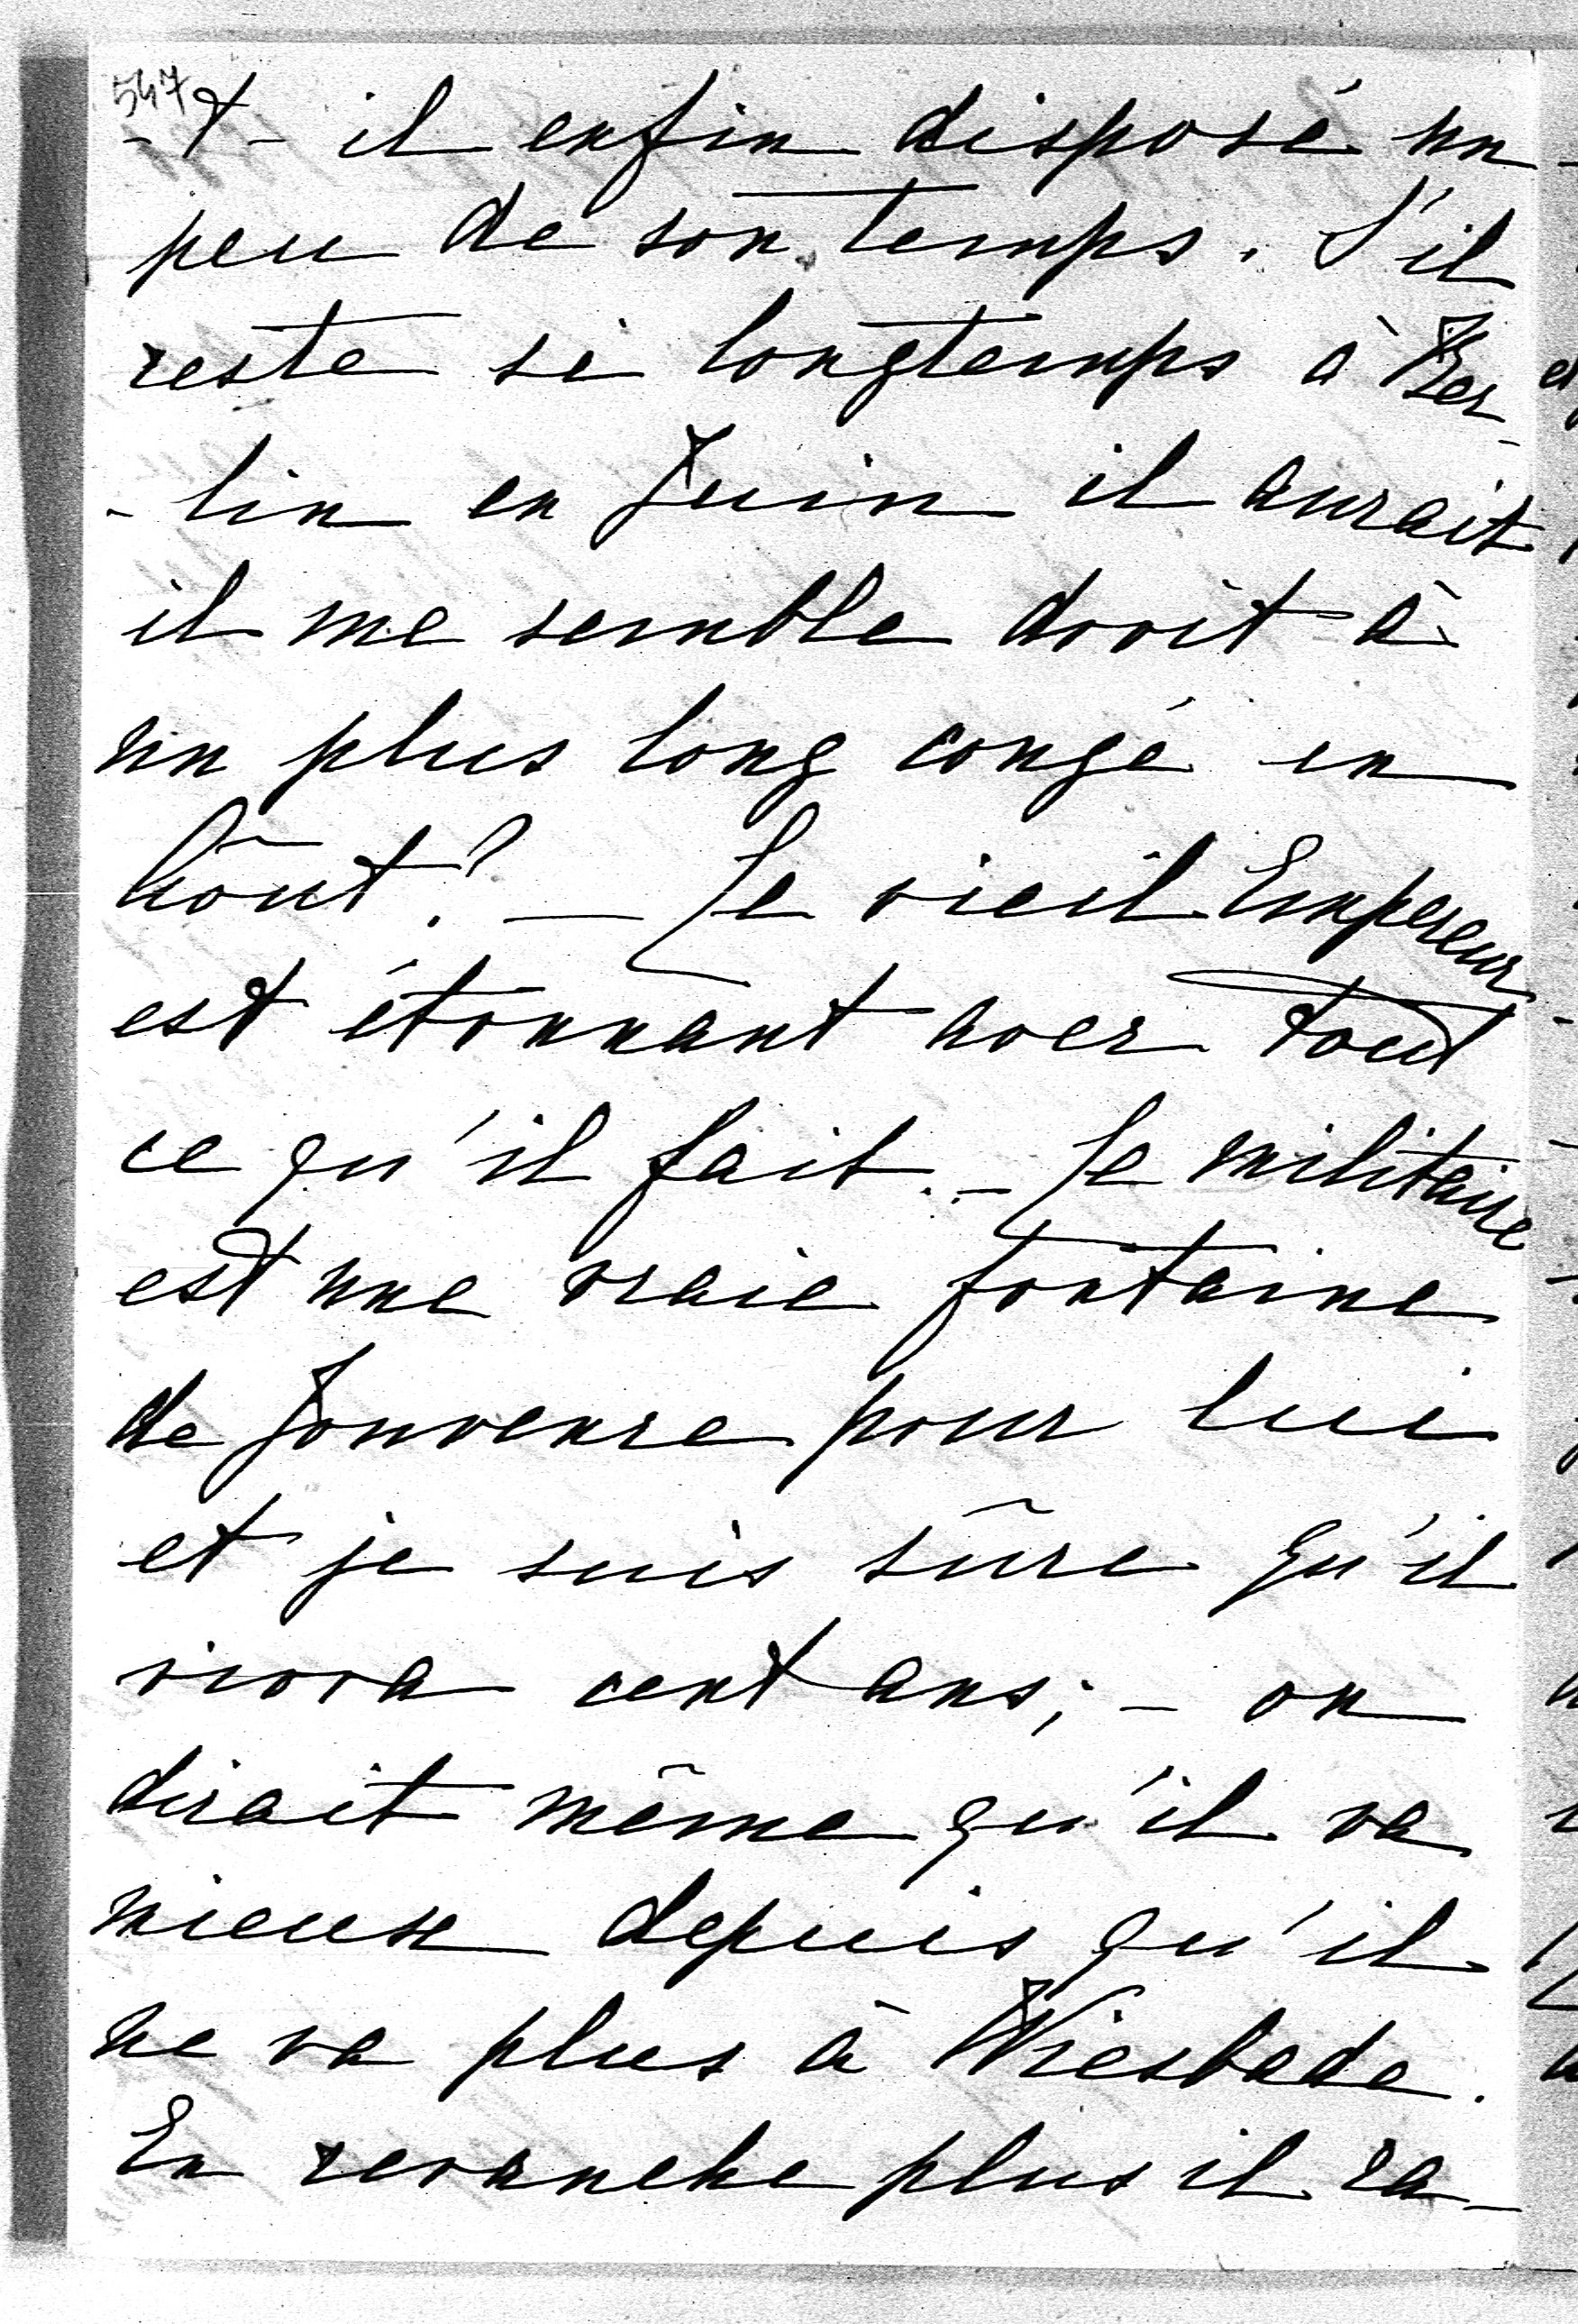 547
-t-il enfin disposé un
peu de son temps. S'il
reste si longtemps à Ber-
-lin en Juin il aurait
il me semble droit à
un plus long congé en
Août? — Le vieil Empereur
est étonnant avec tout
ce qu'il fait. — Le militaire
est une vraie fontaine
de Jouvence pour lui
et je suis sûre qu'il
vivra cent ans; — on
dirait même qu'il va
mieux depuis qu'il
ne va plus à Wiesbade.
En revanche plus il ra-